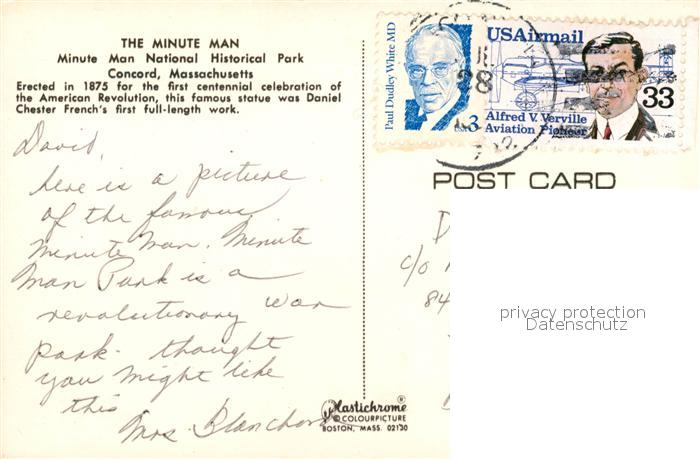 THE MINUTE MAN
Minute Man National Historical Park
Concord, Massachusetts
Erected in 1875 for the first centennial celebration of
the American Revolution, this famous statue was Daniel
Chester French's first full-length work.
David,
here is a picture
of the famous
Minute Man. Minute
Man Park is a
revolutionary war
park. thought
you might like
this
Mrs. Blanchard
Plastichrome®
© COLOURPICTURE
BOSTON, MASS. 02130
Paul Dudley White MD
USA 3
USAirmail
33
Alfred V. Verville
Aviation Pioneer
28
POST CARD
D
c/o
84
privacy protection
Datenschutz